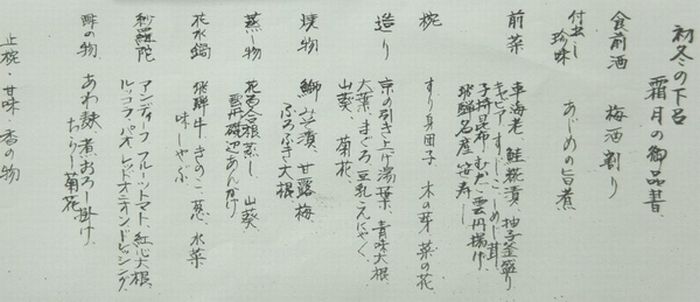 初冬の下呂
霜月の御品書
食前酒 梅酒割り
付出し 珍味 あじめの旨煮
前菜 車海老、鮭糀漬、柚子釜盛り
キャビア、すじこ、しめじ茸、
子持昆布、むかご雲丹揚げ、
飛騨名産笹寿し
椀 すり身団子 木の芽 菜の花
造り 京の引き上げ湯葉、青味大根
大葉、まぐろ、豆乳こんにゃく、
山葵、菊花
焼物 鰤みそ漬、甘露梅、
ふろふき大根
蒸し物 花百合根蒸し、山葵、
雲丹磯辺あんかけ
花水鍋 飛騨牛、きのこ、葱、水菜
味しゃぶ
紗羅陀 アンディーブ、フルーツトマト、紅心大根、
ルッコラ、パオ、レッドオニオンドレッシング
酢の物 あわ麸煮おろし掛け、
ちらし菊花
止椀・甘味・香の物